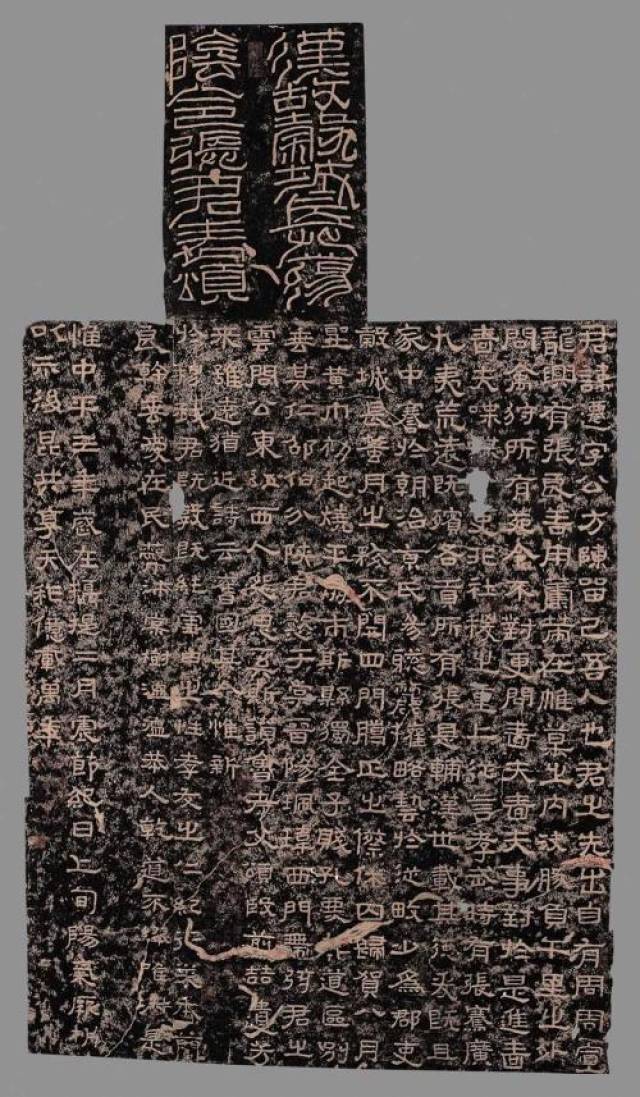 漢故穀城長蕩
陰令張君表頌
君諱遷字公方陳留己吾人也君之先出自有周周宣
龍興有張良善用籌策在帷幕之內決勝負千里之外
問禽狩所有苑令不對更問嗇夫嗇夫事對於是進嗇
嗇夫喋喋吏非社稷之重上從言孝武時有張騫廣
九夷荒遠既殯各貢所有張是輔漢世載其德爰既且
家中謇於朝治京氏易聰麗權略藝於從畋少為郡吏
穀城長蠶月之務不閉四門臘正之僚休囚歸賀八月
黃巾初起燒平城市斯縣獨全子賤孔蔑其道區別
垂其仁邵伯分陝君懿于棠晉陽珮瑋西門帶弦君之
雲周公東征西人怨思奚斯讚魯考父頌殷前喆遺芳
來雖遠猶近詩云舊國其命惟新
於穆我君既敦既純雪白之性孝友之仁紀行來本蘭
良幹垂愛在民蔽沛棠樹溫溫恭人乾道不繆唯淑是
惟中平三年歲在攝提二月震節紀日上旬陽氣厥析
以示後昆共享天祚億載萬年